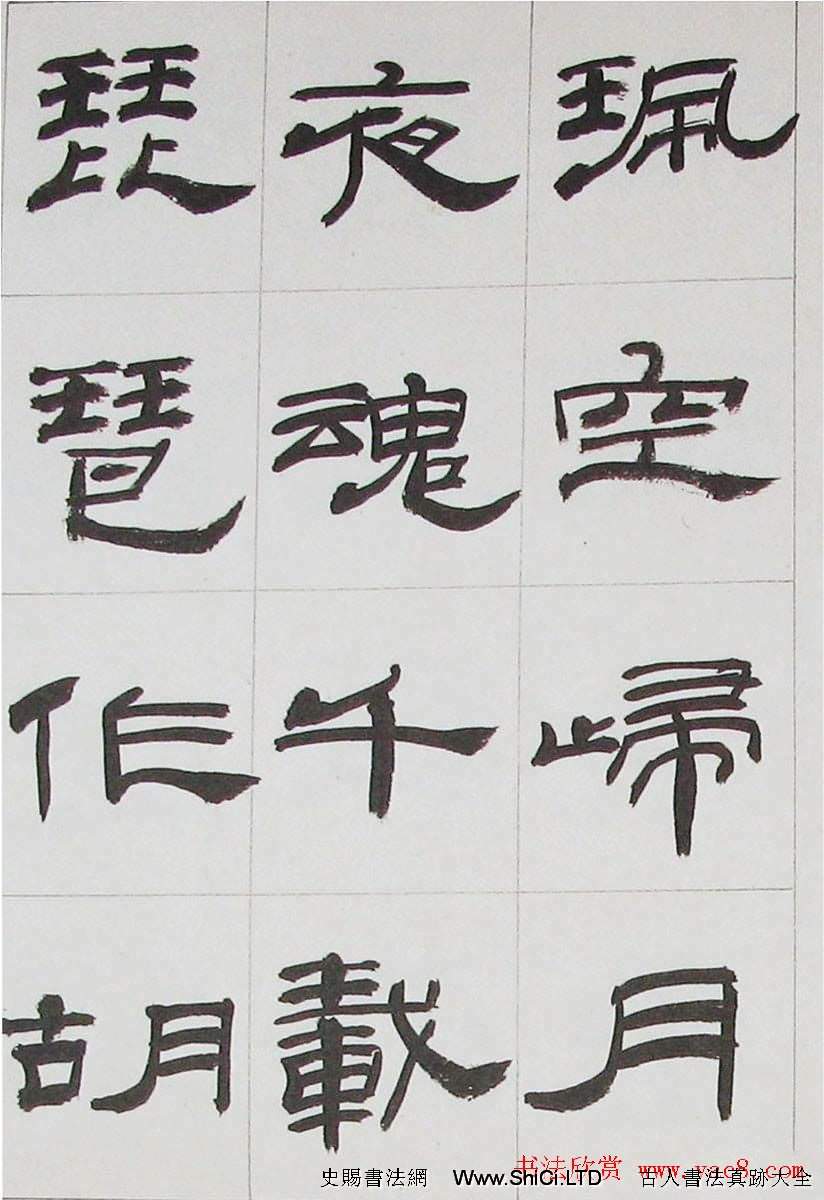 珮空歸月
夜魂千載
琵琶作胡
书法欣赏 www.yac8.com
史賜書法網 Www.ShiCi.LTD 古人書法真跡大全